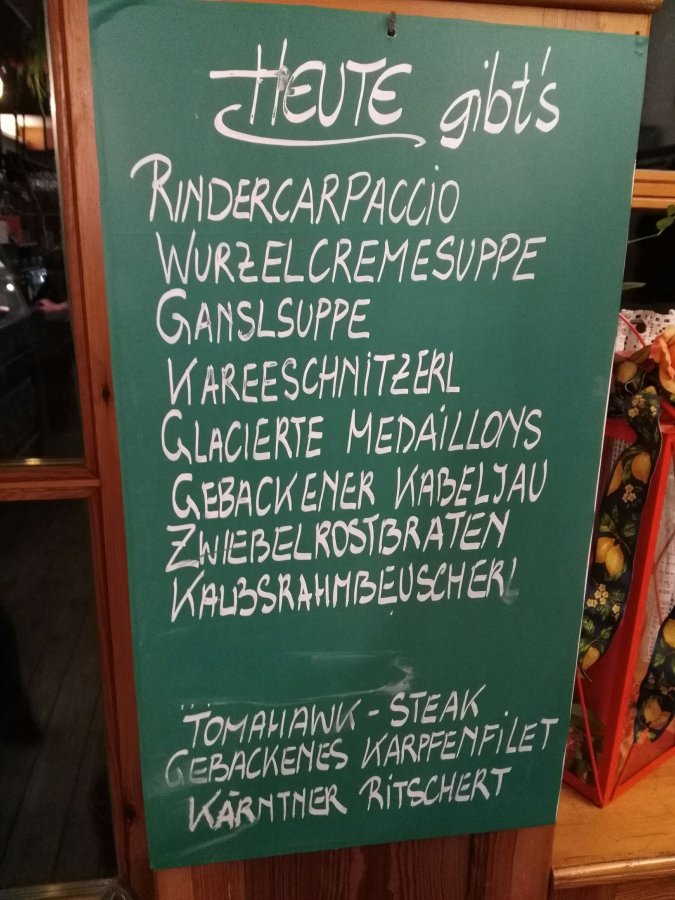 HEUTE gibt's
RINDERCARPACCIO
WURZELCREMESUPPE
GANSLSUPPE
KAREESCHNITZERL
GLACIERTE MEDAILLONS
GEBACKENER KABELJAU
ZWIEBELROSTBRATEN
KALBSRAHMBEUSCHERL
TOMAHAWK - STEAK
GEBACKENES KARPFENFILET
KÄRNTNER RITSCHERT